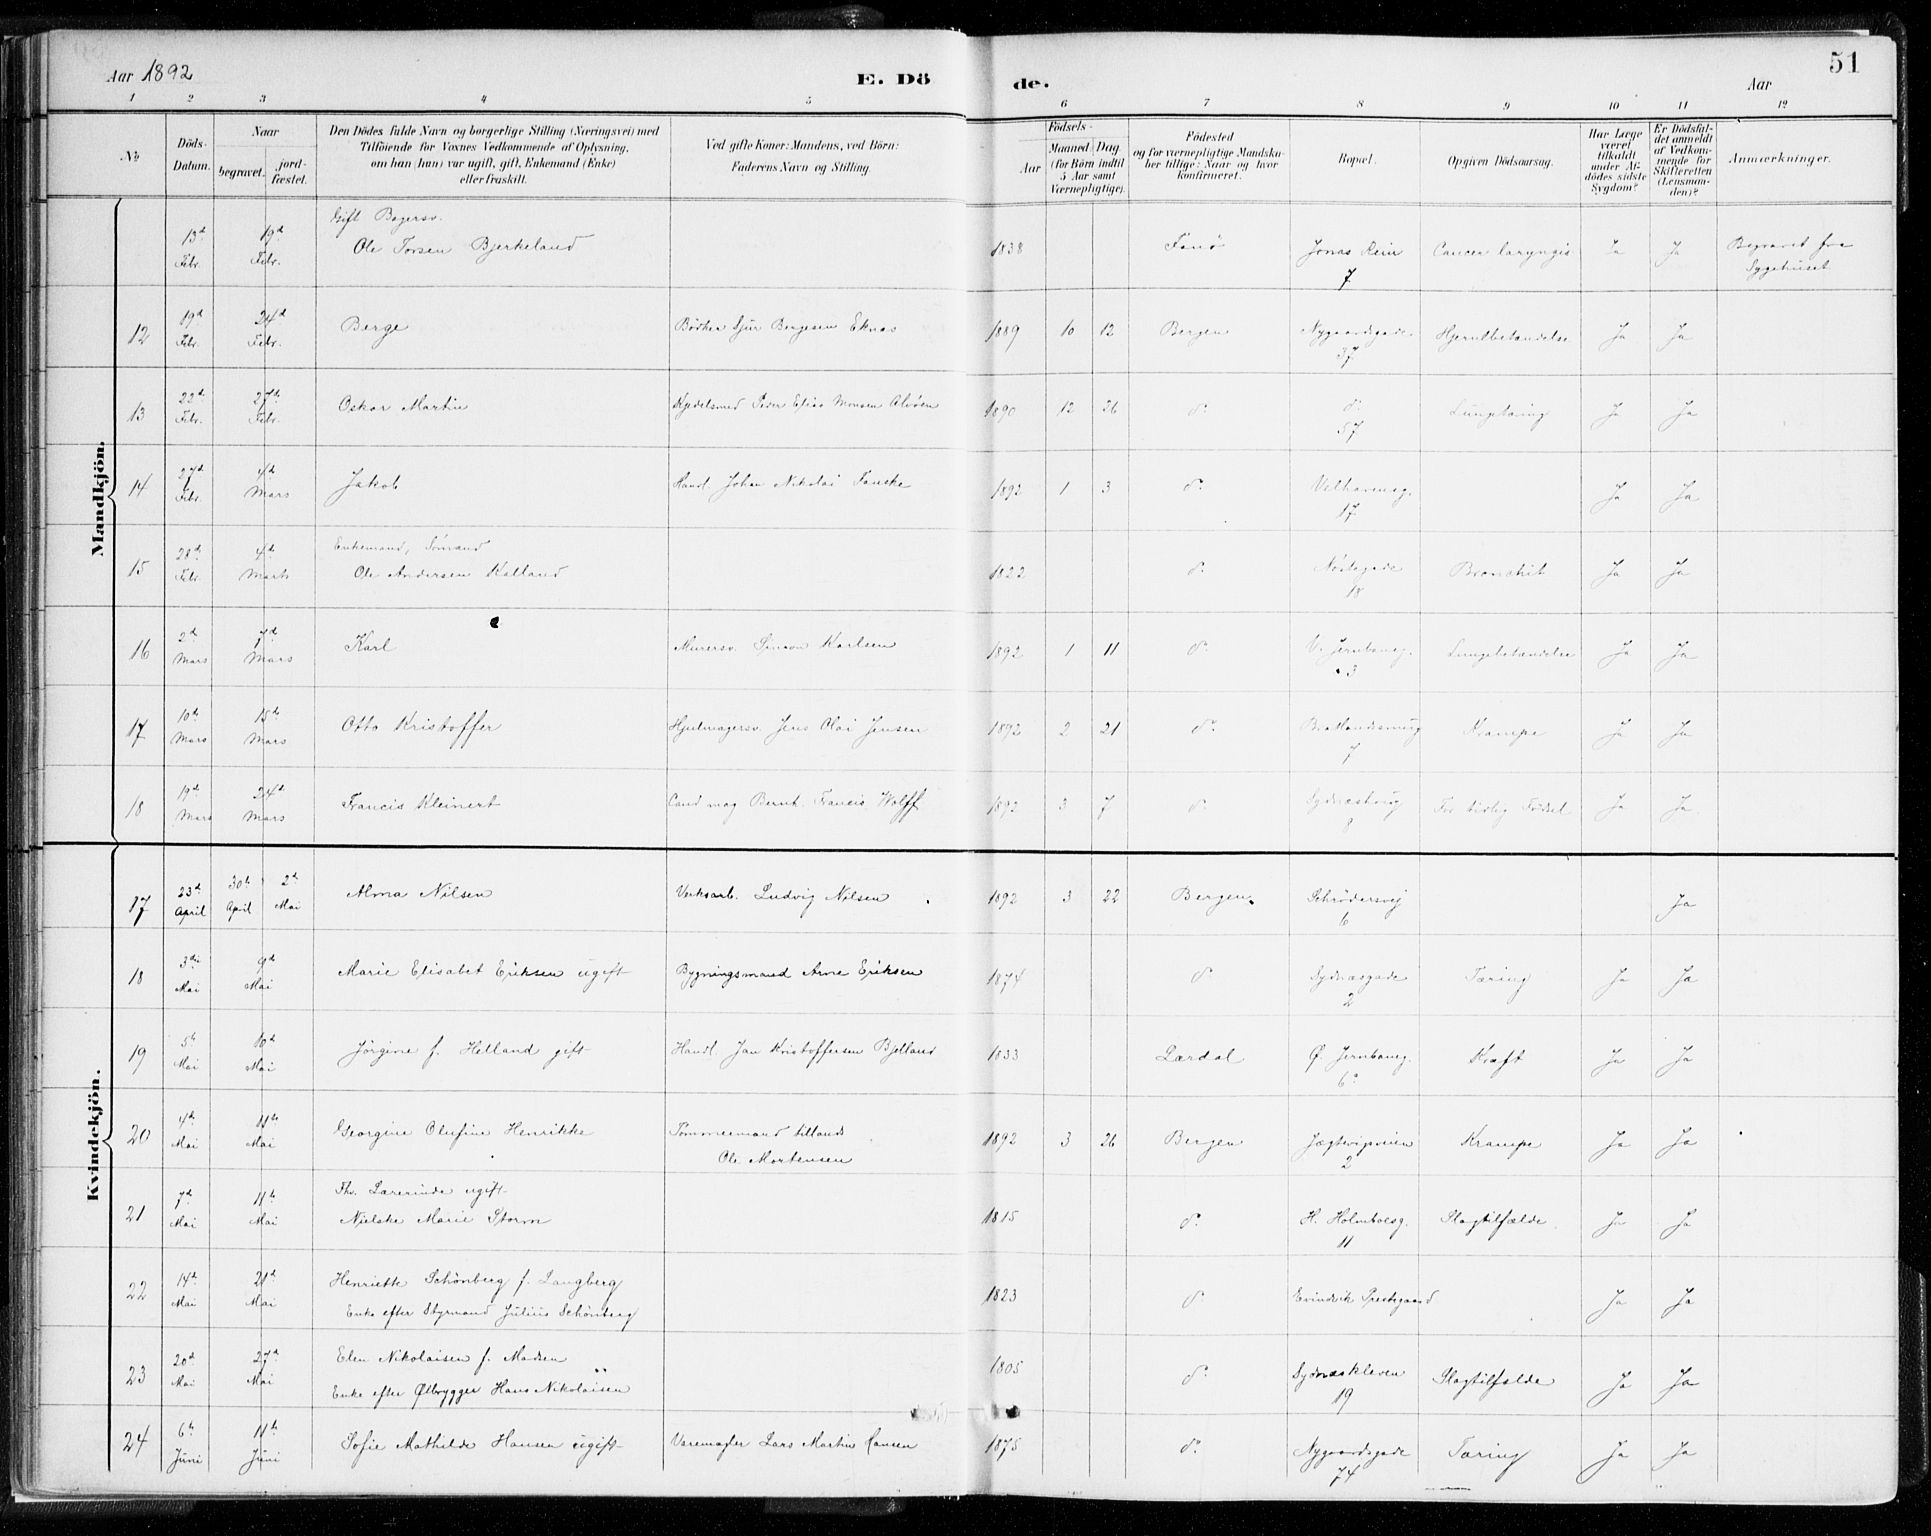 Aar 1892 E. Dö de. Aar 51
1 2 3 4 5 6 7 8 9 10 11 12
No
Döds-Datum.
Naar
begravet.
jord-fæstet.
Den Dödes fulde Navn og borgerlige Stilling (Næringsvei) med
Tilföiende for Voxnes Vedkommende af Oplysning,
om han (hun) var ugift, gift, Enkemand (Enke)
eller fraskilt.
Ved gifte Koner: Mandens, ved Börn:
Faderens Navn og Stilling.
Födsels-
Aar
Maaned Dag
(for Börn indtil
5 Aar samt
Værnepligtige).
Födested
og for værnepligtige Mandska-
ber tillige: Naar og hvor
konfirmeret.
Bopæl.
Opgiven Dödsaarsag.
Har Læge
været
tilkaldt
under Af-
dödes sidste
Sygdom?
Er Dödsfal-
det anmeldt
af Vedkom-
mende for
Skifteretten
(Lensman-
den)?
Anmærkninger.
Mandkjön.
13de Febr. 19de Febr. Gift Bagersv.
Ole Torsen Bjerkeland 1838 Fanø Jonas Reins 7 Cancer laryngis Ja Ja Begravet fra
Sygehuset
12 19de Febr. 24de Febr. Berge Bødker Sjur Bergesen Eknes 1889 10 12 Bergen Nygaardsgade 37 Hjernebetændelse Ja Ja
13 22de Febr. 27de Febr. Oskar Martin Kjedelsmed Peder Elias Monsen Alvøen 1890 12 26 do do 57 Lungetæring Ja Ja
14 27de Febr. 4de Mars Jakob Handl. Johan Nikolai Fancke 1892 1 3 do Welhavensg. 17 Ja Ja
15 28de Febr. 4de Marts Enkemand, Sømand
Ole Andersen Kalland 1822 do Nøstegade 18 Bronchit Ja Ja
16 2de Mars 7de Mars Karl Murersv. Simon Karlsen 1892 1 11 do V. Jernbaneg. 3 Lungebetændelse Ja Ja
17 10de Mars 15de Mars Otto Kristoffer Hjulmagersv. Jens Olai Jensen 1892 2 21 do 7 Krampe Ja Ja
18 19de Mars 24de Mars Francis Kleinert Cand mag Bernt. Francis Wolff 1892 3 7 do Sydneshaug 8 For tidlig Fødsel Ja Ja
Kvindekjön.
17 23de April 30te April 2de Mai Alma Nilsen Verksarb. Ludvig Nilsen 1892 3 22 Bergen Schrødersvej 6 Ja
18 3die Mai 9de Mai Marie Elisabet Eriksen ugift Bygningsmand Arne Eriksen 1874 do Sydnæsgade 2 Tæring Ja Ja
19 5te Mai 10de Mai Jörgine f. Helland gift Handl. Jan Kristoffersen Bjelland 1833 Lærdal Ø. Jernbaneg. 6a Kræft Ja Ja
20 4de Mai 11te Mai Georgine Olufine Henrikke Tømmermand tillands
Ole Mortensen 1892 3 26 Bergen Jægtevigveien 2 Krampe Ja Ja
21 7de Mai 11te Mai Fhv. Lærerinde ugift
Nielske Marie Storm 1815 do H. Holmboesg. 11 Slagtilfælde Ja Ja
22 14de Mai 21de Mai Henriette Schönberg f. Langberg
Enke efter Styrmand Julius Schönberg 1823 do Evindvik Prestegaard Ja Ja
23 20de Mai 27de Mai Elen Nikolaisen f. Madsen
Enke efter Ølbrygger Hans Nikolaisen 1805 do Sydnæskleven 19 Slagtilfælde Ja Ja
24 6te Juni 11te Juni Sofie Mathilde Hansen ugift Varemægler Lars Martin Hansen 1875 do Nygaardsgade 74 Tæring Ja Ja